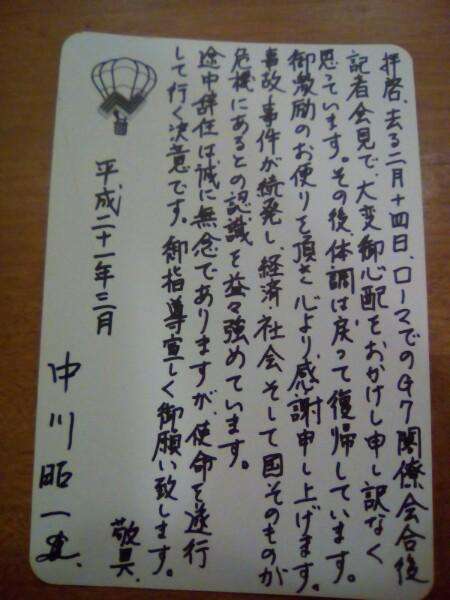 拝啓、去る二月十四日、ローマでのG7閣僚会合後
記者会見で、大変御心配をおかけし申し訳なく
思っています。その後、体調は戻って復帰しています。
御激励のお便りを頂き心より感謝申し上げます。
事故・事件が続発し、経済社会そして国そのものが
危機にあるとの認識を益々強めています。
途中辞任は誠に無念でありますが、使命を遂行
して行く決意です。御指導宜しく御願い致します。
敬具
平成二十一年三月
中川昭一